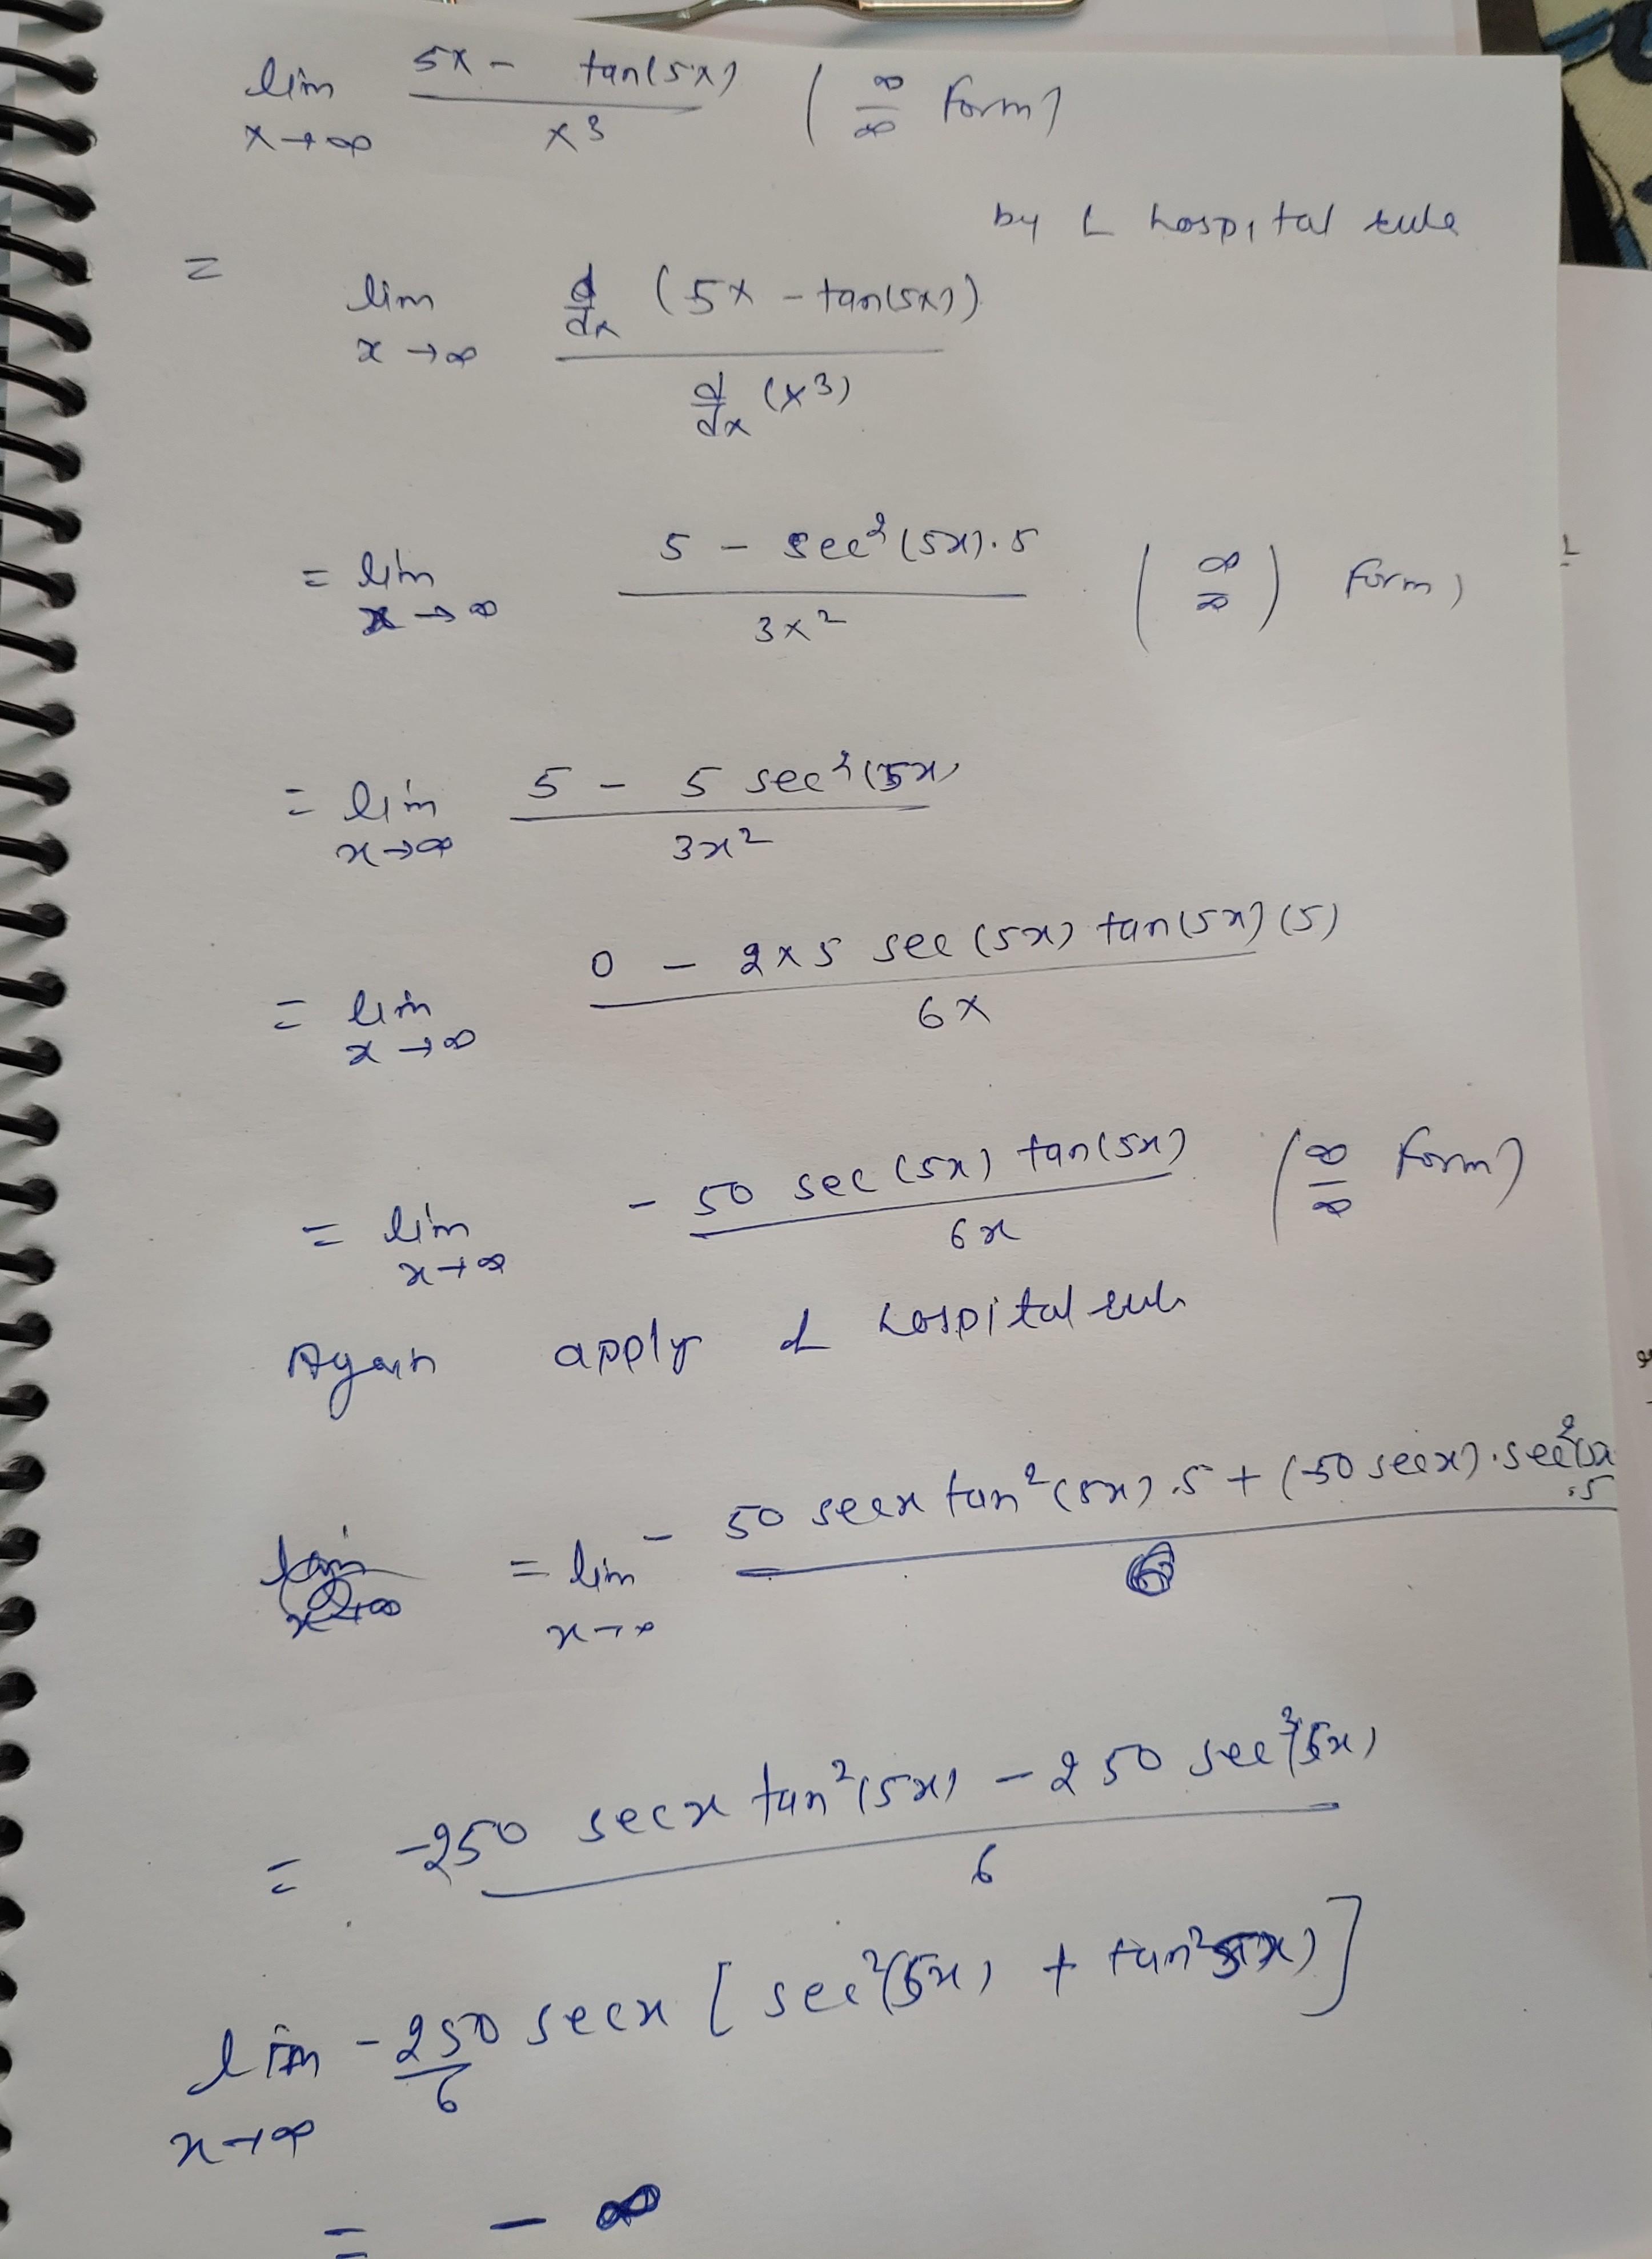 lim 5x - tan(5x) / x3 ( ∞/∞ form)
x→∞
by L hospital rule
= lim d/dx (5x - tan(5x)) / d/dx (x3)
x→∞
= lim 5 - sec²(5x).5 / 3x² ( ∞/∞ ) form)
x→∞
= lim 5 - 5 sec²(5x) / 3x²
x→∞
= lim 0 - 2x5 sec(5x) tan(5x)(5) / 6x
x→∞
= lim - 50 sec(5x) tan(5x) / 6x ( ∞/∞ form)
x→∞
Again apply L hospital rule
= lim - 50 secx tan²(5x).5 + (-50 secx).sec²(5x) .5 / 6
x→∞
= -250 secx tan²(5x) - 250 sec³(5x) / 6
lim -250/6 secx [ sec²(5x) + tan²5x) ]
x→∞
= - ∞